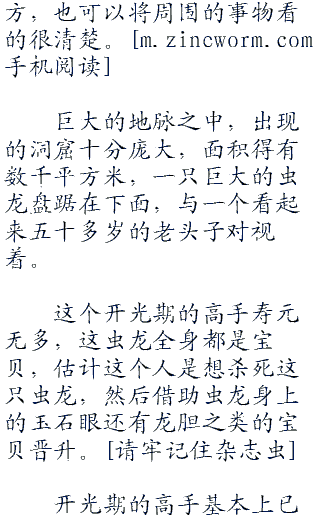 方，也可以将周围的事物看
的很清楚。[m.zincworm.com
手机阅读]
巨大的地脉之中，出现
的洞窟十分庞大，面积得有
数千平方米，一只巨大的虫
龙盘踞在下面，与一个看起
来五十多岁的老头子对视
着。
这个开光期的高手寿元
无多，这虫龙全身都是宝
贝，估计这个人是想杀死这
只虫龙，然后借助虫龙身上
的玉石眼还有龙胆之类的宝
贝晋升。[请牢记住杂志虫]
开光期的高手基本上已